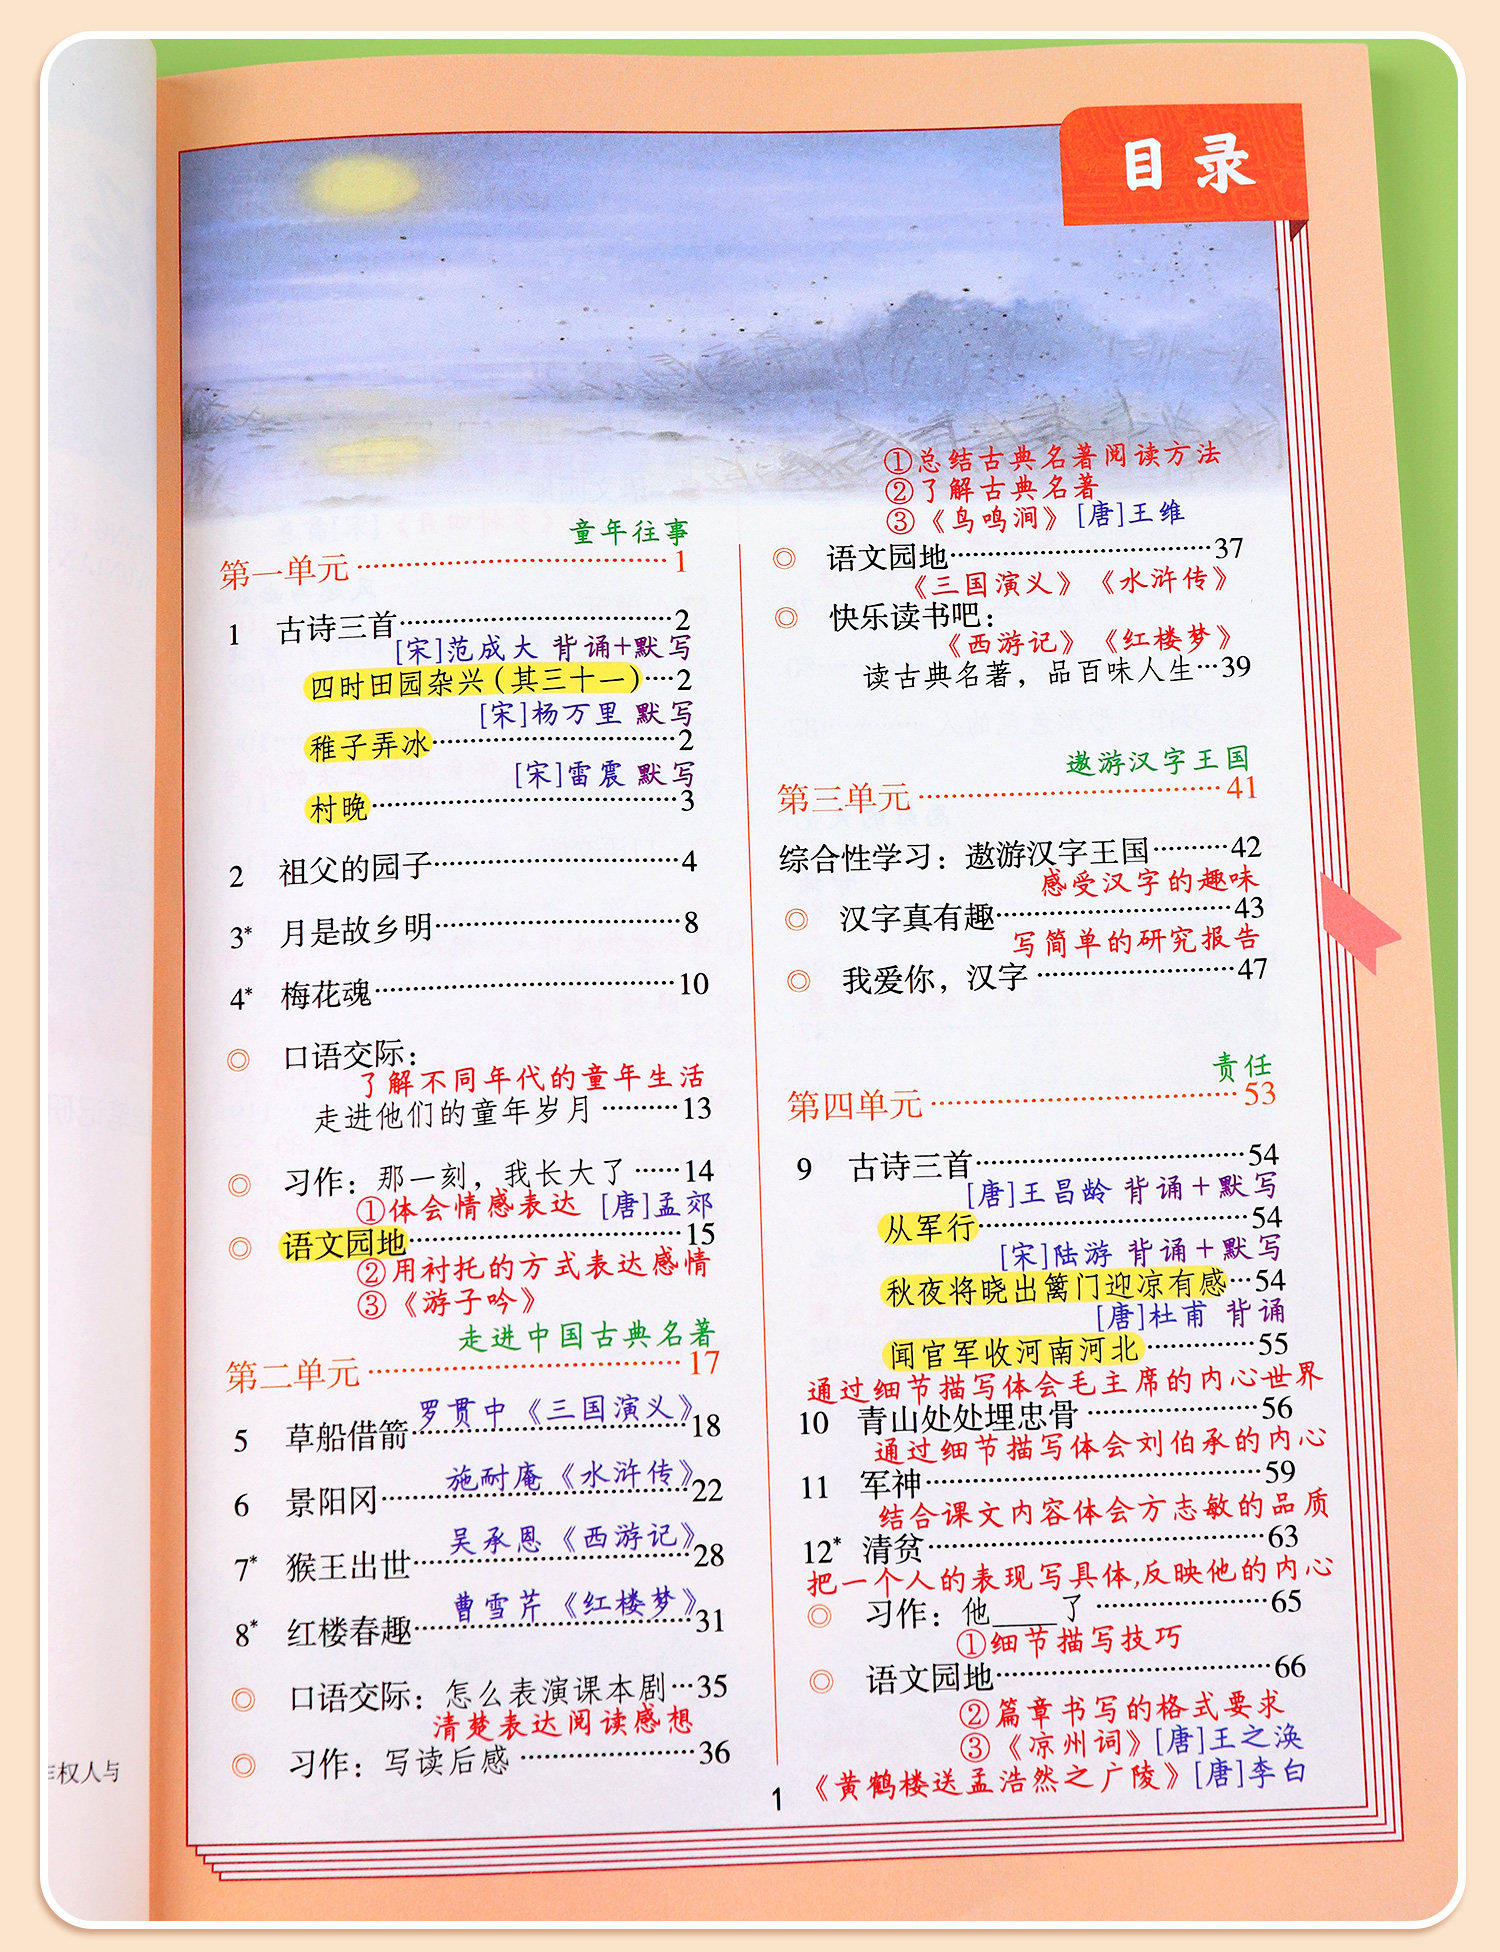 目录
童年往事
第一单元……1
1 古诗三首……2
[宋]范成大 背诵+默写
四时田园杂兴(其三十一)……2
[宋]杨万里 默写
稚子弄冰……2
[宋]雷震 默写
村晚……3
2 祖父的园子……4
3* 月是故乡明……8
4* 梅花魂……10
◎ 口语交际：
了解不同年代的童年生活
走进他们的童年岁月……13
◎ 习作：那一刻，我长大了……14
①体会情感表达 [唐]孟郊
◎ 语文园地……15
②用衬托的方式表达感情
③《游子吟》
走进中国古典名著
第二单元……17
罗贯中《三国演义》
5 草船借箭……18
施耐庵《水浒传》
6 景阳冈……22
吴承恩《西游记》
7* 猴王出世……28
曹雪芹《红楼梦》
8* 红楼春趣……31
◎ 口语交际：怎么表演课本剧……35
清楚表达阅读感想
◎ 习作：写读后感……36
①总结古典名著阅读方法
②了解古典名著
③《鸟鸣涧》[唐]王维
◎ 语文园地……37
《三国演义》《水浒传》
◎ 快乐读书吧：
《西游记》《红楼梦》
读古典名著，品百味人生…39
遨游汉字王国
第三单元……41
综合性学习：遨游汉字王国……42
感受汉字的趣味
◎ 汉字真有趣……43
写简单的研究报告
◎ 我爱你，汉字……47
责任
第四单元……53
9 古诗三首……54
[唐]王昌龄 背诵+默写
从军行……54
[宋]陆游 背诵+默写
秋夜将晓出篱门迎凉有感…54
[唐]杜甫 背诵
闻官军收河南河北……55
通过细节描写体会毛主席的内心世界
10 青山处处埋忠骨……56
通过细节描写体会刘伯承的内心
11 军神……59
结合课文内容体会方志敏的品质
12* 清贫……63
把一个人的表现写具体,反映他的内心
◎ 习作：他____了……65
①细节描写技巧
◎ 语文园地……66
②篇章书写的格式要求
③《凉州词》[唐]王之涣
《黄鹤楼送孟浩然之广陵》[唐]李白
1
权人与